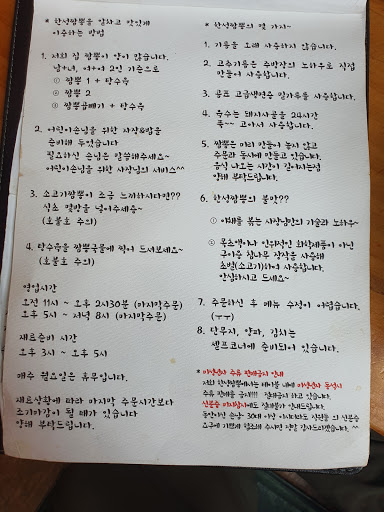 * 한성짬뽕을 알차고 맛있게
이용하는 방법
1. 저희 집 짬뽕이 양이 많습니다.
남+녀, 여+여 2인 기준으로
① 짬뽕 1 + 탕수육
② 짬뽕 2
③ 짬뽕곱빼기 + 탕수육
2. 어린이손님을 위한 자장&밥을
준비해 두었습니다
필요하신 손님은 말씀해주세요~
어린이손님을 위한 사장님의 서비스^^
3. 소고기짬뽕이 조금 느끼하시다면??
식초 몇방울 넣어주세용~
(호불호 주의)
4. 탕수육을 짬뽕국물에 찍어 드셔보세요~
(호불호 주의)
영업시간
오전 11시 ~ 오후 2시30분 (마지막주문)
오후 5시 ~ 저녁 8시 (마지막주문)
재료준비 시간
오후 3시 ~ 오후 5시
매주 월요일은 휴무입니다.
재료상황에 따라 마지막 주문시간보다
조기마감이 될 때가 있습니다
양해 부탁드립니다.
* 한성짬뽕의 몇 가지~
1. 기름을 오래 사용하지 않습니다.
2. 고추기름은 주방장의 노하우로 직접
만들어 사용합니다.
3. 곰표 고급생면용 밀가루를 사용합니다.
4. 육수는 돼지사골을 24시간
푹~~ 고아서 사용합니다.
5. 짬뽕은 미리 만들어 놓지 않고
주문과 동시에 만들고 있습니다.
음식 나오는 시간이 길어지는점
양해 부탁드립니다.
6. 한성짬뽕의 불맛??
① 야채를 볶는 사장님만의 기술과 노하우~
② 목초액이나 인위적인 화학제품이 아닌
구이용 참나무 장작을 사용해
초벌(소고기)하여 사용합니다.
안심하시고 드세요~
7. 주문하신 후 메뉴 수정이 어렵습니다.
(ㅜㅜ)
8. 단무지, 양파, 김치는
셀프코너에 준비되어 있습니다.
* 미성년자 주류 판매금지 안내
저희 한성짬뽕에서는 테이블 내에 미성년자 동석시
주류 판매를 금지!!! 절대금지 하고 있습니다.
신분증 미지참시에도 절대불가 안내드립니다.